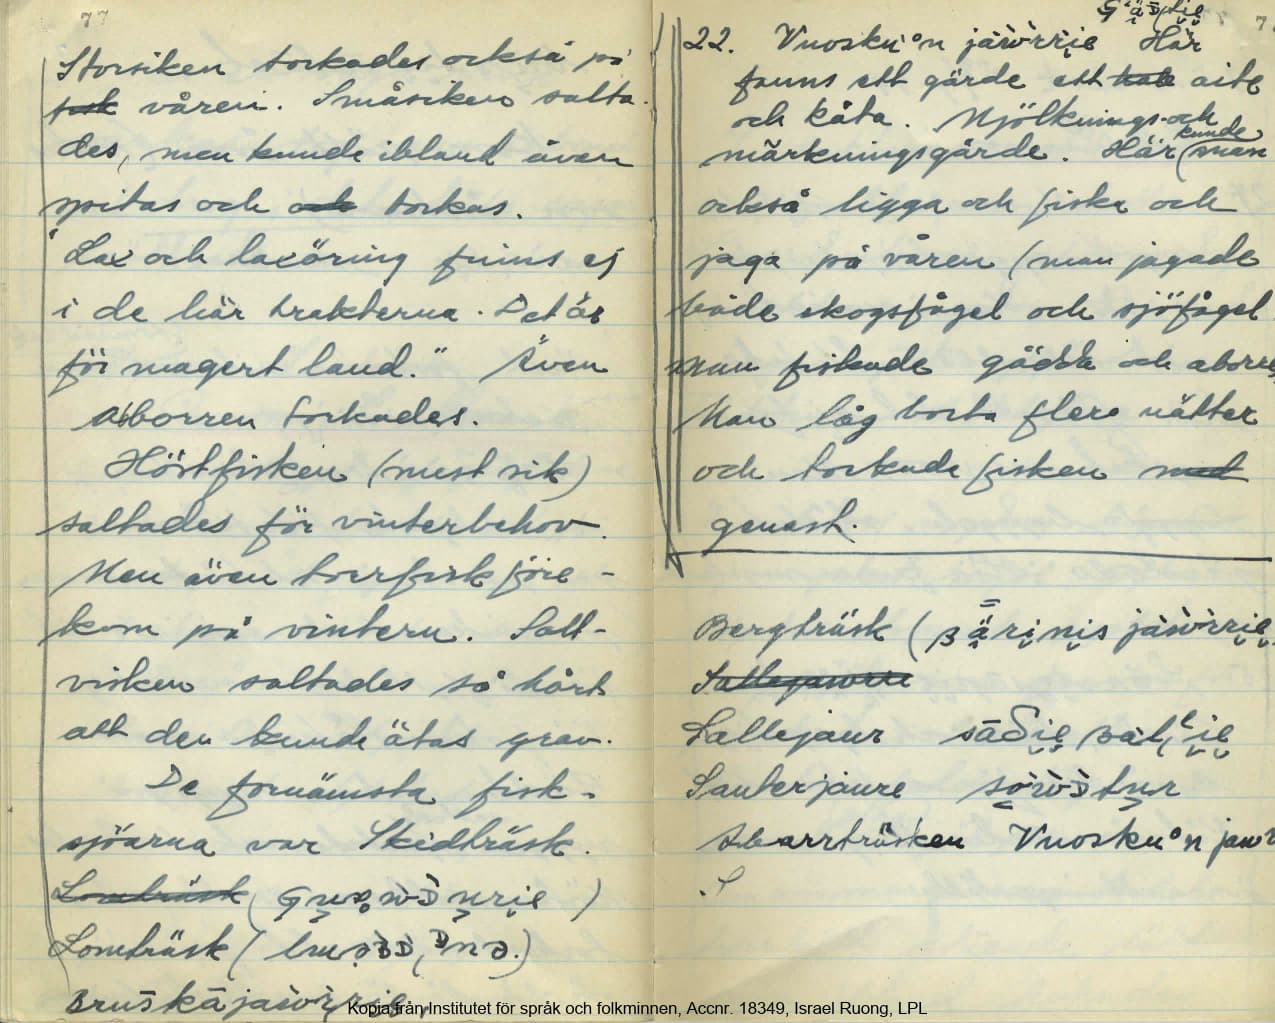 77
Storsiken torkades också på
våren. Småsiken salta-
des, men kunde ibland även
spitas och och torkas.
"Lax och laxöring finns ej
i de här trakterna. Det är
för magert land." Även
Abborren torkades.
Höstfisken (mest sik)
saltades för vinterbehov.
Men även torrfisk före-
kom på vintern. Salt-
sisken saltades så hårt
att den kunde ätas grav.
De förnämsta fisk-
sjöarna var Skidträsk.
Lomträsk
Lomträsk (
7
22. Vuosku°n jàẁrrie Här
fanns ett gärde ett aite
och kåta. Mjölknings- och
märkningsgärde. Här kunde man
också ligga och fiska och
jaga på våren (man jagade
både skogsfågel och sjöfågel
man fiskade gädda och aborre
Man låg borta flera nätter
och torkade fisken med
genast.
Bergträsk (
Sallejaur
Sauterjaure
Abarrträsken Vuosku°n
S
Kopia från Institutet för språk och folkminnen, Accnr. 18349, Israel Ruong, LPL